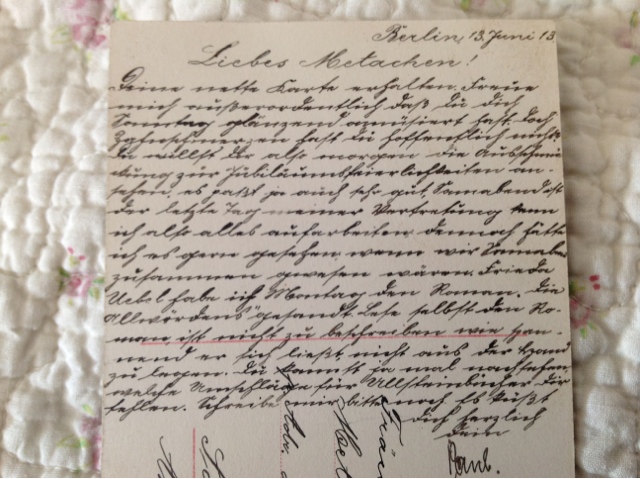 Berlin, 13. Juni 13
Liebes Metachen!
Deine nette Karte erhalten. Freue
mich außerordentlich daß Du Dich
Sonntag glänzend amüsiert hast. Doch
Zahnschmerzen hast Du hoffentlich nicht.
Du willst Dir also morgen die Ausschmü-
ckung zur Jubiläumsfeierlichkeiten an-
sehen, es paßt ja auch sehr gut, Sonnabend ist
der letzte Tag meiner Vertretung kann
ich also alles aufarbeiten dennoch hätte
ich es gern gesehen wenn wir Sonnabend
zusammen gewesen wären. Frieda
Uebel habe ich Montag den Roman. Die
Allwördens" gesandt. Lese selbst den Ro-
man ist nicht zu beschreiben wie span-
nend er sich ließt, nicht aus der Hand
zu legen. Du kannst ja mal nachsehen
welche Umschläge für Ullsteinbücher Dir
fehlen. Schreibe mir bitte noch. Es küßt
Dich herzlich
Dein
Paul.